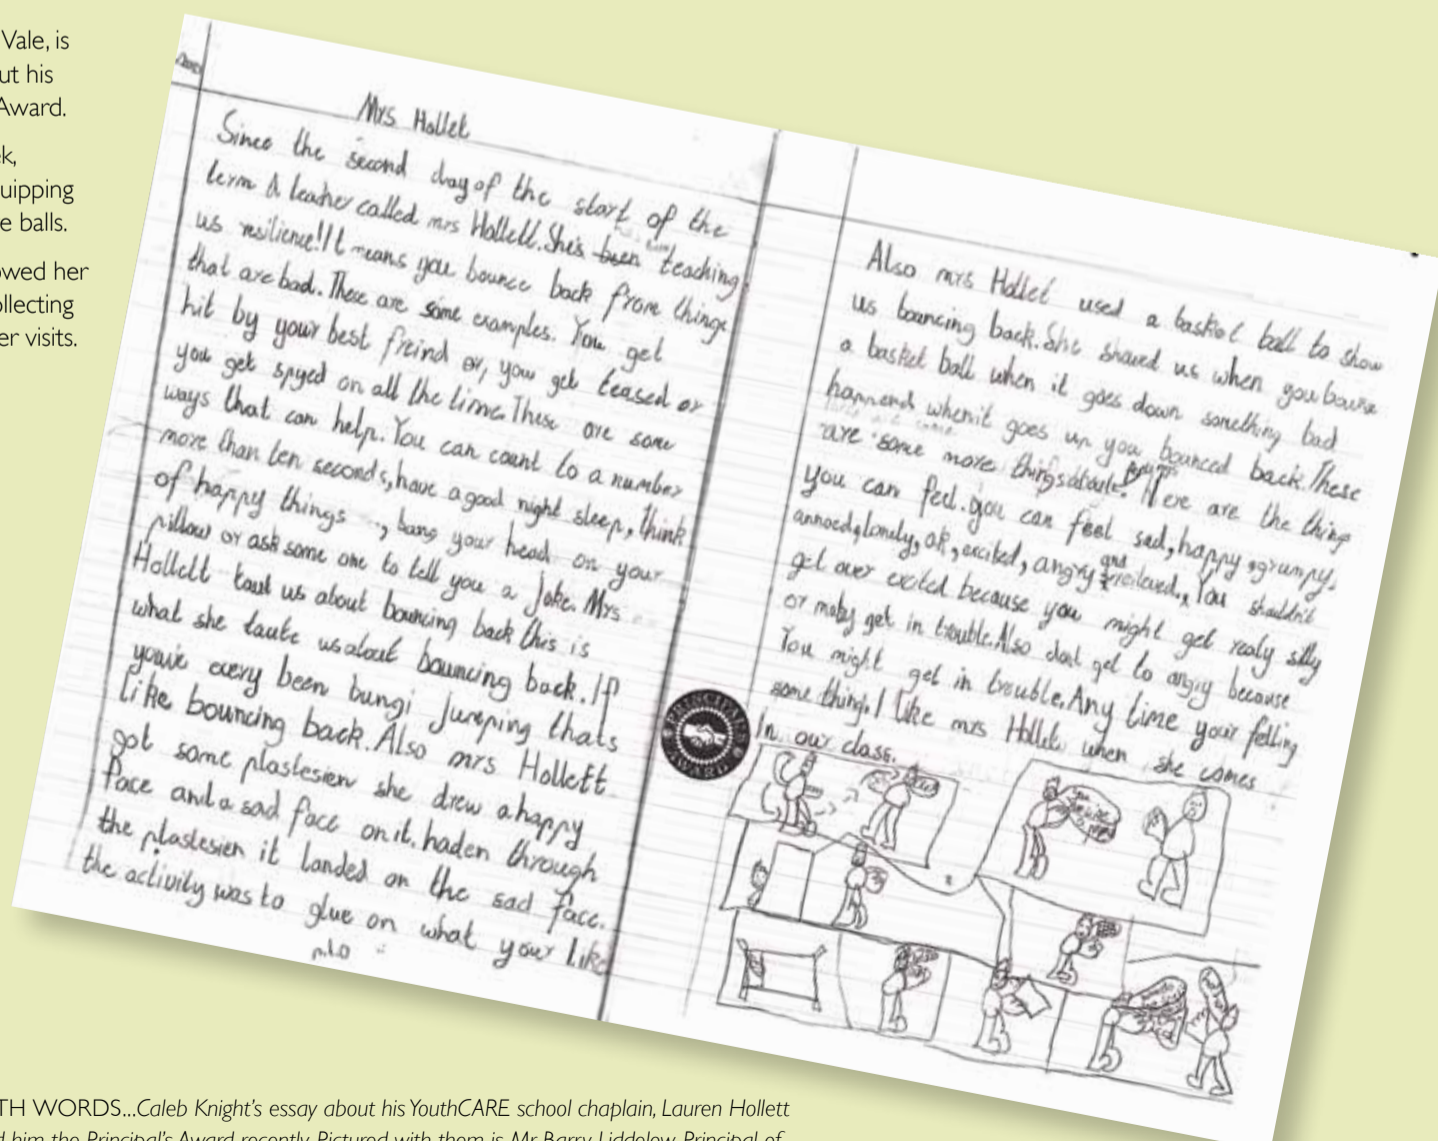 Vale, is
ut his
Award.
ek,
uipping
e balls.
owed her
ollecting
er visits.
Mrs Hollet
Since the second day of the start of the
term A teacher called mrs Hollett. She's been teaching
us resilience! It means you bounce back from things
that are bad. These are some examples. You get
hit by your best freind or, you get teased or
you get spyed on all the time. These are some
ways that can help. You can count to a number
more than ten seconds, have a good night sleep, think
of happy things , bang your head on your
pillow or ask some one to tell you a joke. Mrs
Hollett taut us about bouncing back this is
what she taute us about bouncing back. If
you've every been bungi jumping thats
like bouncing back. Also mrs Hollett
got some plastesien she drew a happy
face and a sad face on it. haden through
the plastesien it landed on the sad face.
the activity was to glue on what your like
p.t.o
Also mrs Hollet used a basket ball to show
us bouncing back. She shawed us when you bounce
a basket ball when it goes down something bad
happend when it goes up you bounced back. These
are some more things Here are the things
you can feel. you can feel sad, happy, grumpy,
annoed, lonely, ok, excited, angry and You shouldn't
get over excited because you might get realy silly
or maby get in trouble. Also dont get to angry because
You might get in trouble. Any time your felling
some thing. I like mrs Hollet when she comes
In our class.
PRINCIPAL'S
AWARD
TH WORDS...Caleb Knight's essay about his YouthCARE school chaplain, Lauren Hollett
d him the Principal's Award recently. Pictured with them is Mr Barry Liddelow, Principal of